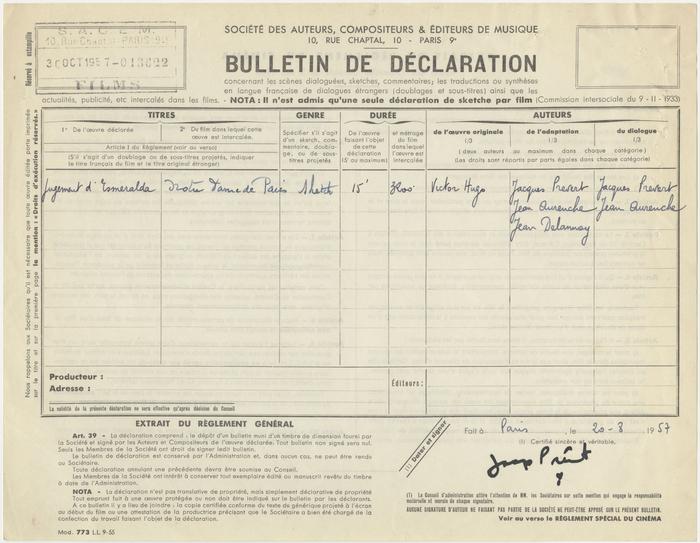 S. A. C. E. M.
10, Rue Chaptal - PARIS - 9e
30 OCT 1957 - 013622
FILMS
Réservé à estampille
SOCIÉTÉ DES AUTEURS, COMPOSITEURS & ÉDITEURS DE MUSIQUE
10, RUE CHAPTAL, 10 - PARIS 9e
BULLETIN DE DÉCLARATION
concernant les scènes dialoguées, sketches, commentaires; les traductions ou synthèses
en langue française de dialogues étrangers (doublages et sous-titres) ainsi que les
actualités, publicité, etc intercalés dans les films. - NOTA : Il n'est admis qu'une seule déclaration de sketche par film (Commission intersociale du 9 - II - 1933)
Nous rappelons aux Sociétaires qu'il est nécessaire que toute œuvre éditée porte imprimée
sur le titre et sur la première page la mention : « Droits d'exécution réservés. »
TITRES
GENRE
DURÉE
AUTEURS
1° De l'œuvre déclarée
2° Du film dans lequel cette
œuvre est intercalée.
Article I du Règlement (voir au verso)
(S'il s'agit d'un doublage ou de sous-titres projetés, indiquer
le titre français du film et le titre original étranger)
Spécifier s'il s'agit
d'un sketch, com-
mentaire, doubla-
ge, ou de sous-
titres projetés
De l'œuvre
faisant l'objet
de cette
déclaration
15' au maximum)
et métrage
du film
dans lequel
l'œuvre est
intercalée
de l'œuvre originale
1/3
de l'adaptation
1/3
du dialogue
1/3
( deux auteurs au maximum dans chaque catégorie)
(Les droits sont répartis par parts égales dans chaque catégorie)
Jugement d'Esmeralda
Notre Dame de Paris
Sketch
15'
Victor Hugo
Jacques Prevert
Jacques Prevert
Jean Aurenche
Jean Aurenche
Jean Delannoy
Producteur :
Adresse :
Éditeurs :
La validité de la présente déclaration ne sera effective qu'après décision du Conseil
EXTRAIT DU RÈGLEMENT GÉNÉRAL
Art. 39 - La déclaration comprend : le dépôt d'un bulletin muni d'un timbre de dimension fourni par
la Société et signé par les Auteurs et Compositeurs de l'œuvre déclarée. Tout bulletin non signé sera nul.
Seuls les Membres de la Société ont droit de signer ledit bulletin.
Le bulletin de déclaration est conservé par la Société et, dans aucun cas, ne peut être rendu
au Sociétaire.
Toute déclaration annulant une précédente devra être soumise au Conseil.
Les Membres de la Société ont intérêt à conserver tout exemplaire édité ou manuscrit revêtu du timbre
à date de l'Administration.
NOTA - La déclaration n'est pas translative de propriété, mais simplement déclarative de propriété
Tout emprunt fait à une œuvre protégée ou non doit être indiqué sur le bulletin par les déclarants.
A ce bulletin il y a lieu de joindre : la copie certifiée conforme du texte du générique projeté à l'écran
au début du film ou une attestation de la productrice précisant que le Sociétaire a bien été chargé de la
confection du travail faisant l'objet de la déclaration.
Mod. 773 L.L. 9-55
(1) Dater et signer
Fait à Paris, le 20-8 1957
(1) Certifié sincère et véritable,
(1) Le Conseil d'administration attire l'attention de MM. les Sociétaires sur cette mention qui engage la responsabilité
matérielle et morale de chaque signataire.
AUCUNE SIGNATURE D'AUTEUR NE FAISANT PAS PARTIE DE LA SOCIÉTÉ NE PEUT-ÊTRE APPOSÉ SUR LE PRÉSENT BULLETIN.
Voir au verso le RÈGLEMENT SPÉCIAL DU CINÉMA